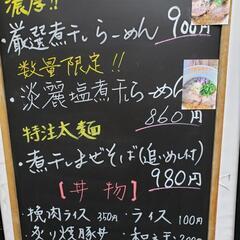 濃厚!!
・厳選煮干しらーめん 900円
数量限定!!
・淡麗塩煮干らーめん
860円
特注太麺
・煮干しまぜそば(追いめし付)
980円
【丼物】
・挽肉ライス 350円 ・ライス 100円
・炙り焼豚丼 ・和え玉